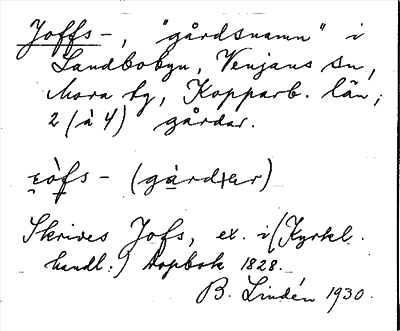 Joffs-, "gårdsnamn" i
Landbobyn, Venjans sn,
Mora tg, Kopparb. län;
2 (à 4) gårdar.
Skrives Jofs, ex. i (Kyrkl.
handl:) Dopbok 1828.
B. Lindén 1930.